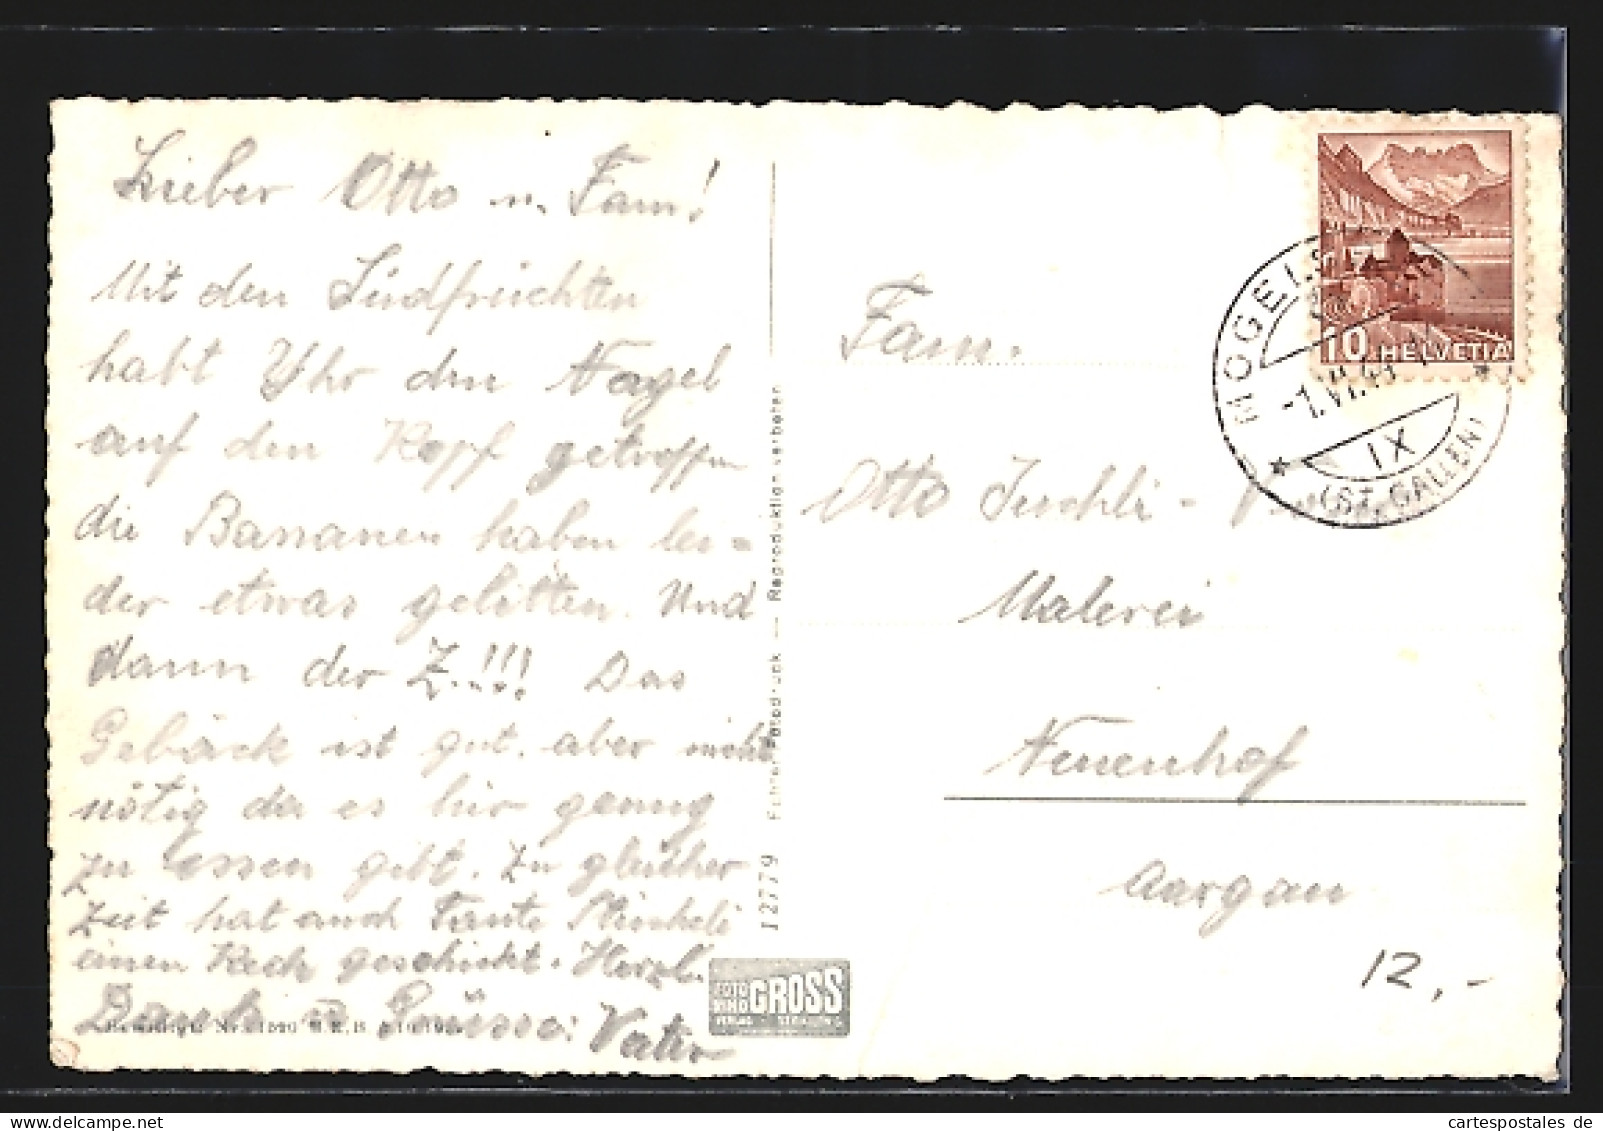 Lieber Otto u. Fam!
Mit den Südfrüchten
habt Ihr den Nagel
auf den Kopf getroffen
die Bananen haben lei=
der etwas gelitten. Und
dann der Z...!!! Das
Gebäck ist gut. aber nicht
nötig da es hier genug
zu essen gibt. Zu gleicher
Zeit hat auch Tante
einen geschickt. Herzl.
Dank u Grüsse: Vater
12779 Echter Fotodruck — Reproduktion verboten
FOTO GROSS
HELVETIA
10
MOGELS
-1.VI.4
IX
(ST. GALLEN)
Fam.
Otto
Malerei
Neuenhof
Aargau
12,-
cartespostales de